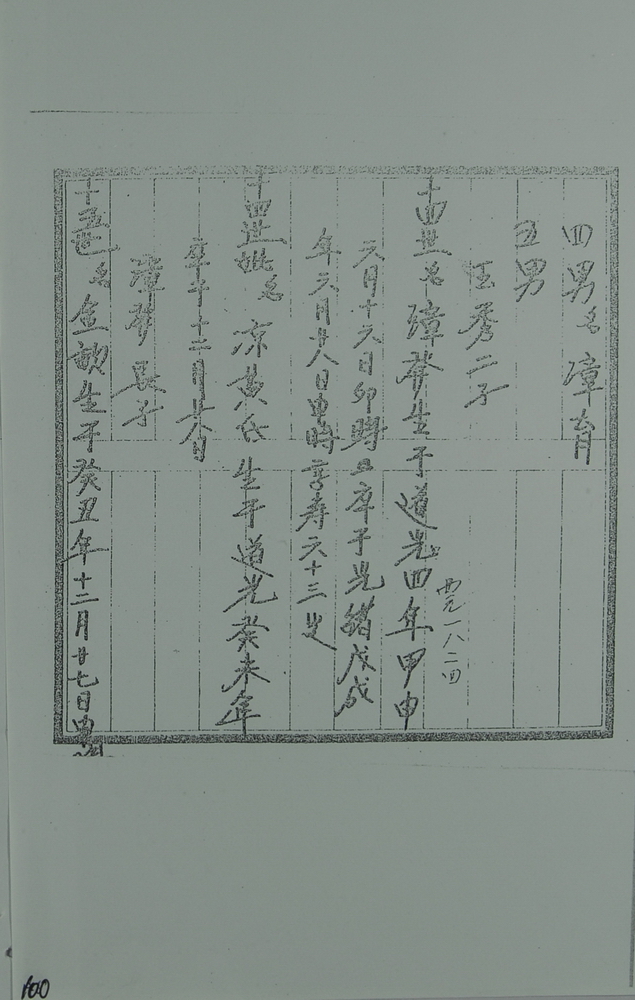 四男名璋育
五男
玉秀二子
十四世名璋發生于道光四年甲申
西元一八二四
六月十六日卯時 卒于光緒戊戌
年六月廿八日申時享寿六十三岁
十四世妣名凉黄氏生于道光癸未年
卒年十二月廿八日
璋發長子
十五世名金歆生于癸丑年十二月廿七日申時
100